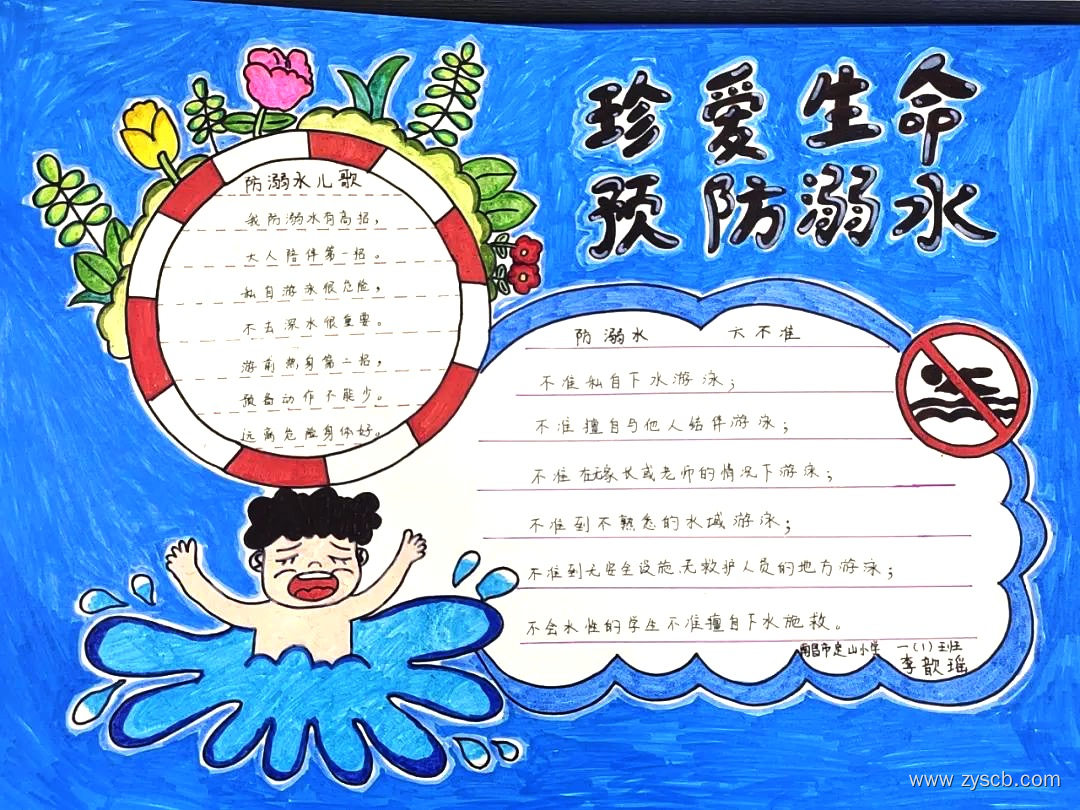 珍爱生命
预防溺水
防溺水儿歌
我防溺水有高招，
大人陪伴第一招。
私自游泳很危险，
不去深水很重要。
游前热身第二招，
预备动作不能少。
远离危险身体好。
防溺水 六不准
不准私自下水游泳；
不准擅自与他人结伴游泳；
不准在家长或老师的情况下游泳；
不准到不熟悉的水域游泳；
不准到无安全设施、无救护人员的地方游泳；
不会水性的学生不准擅自下水施救。
南昌市定山小学 一(1)班
李歆瑶
www.zyscb.com